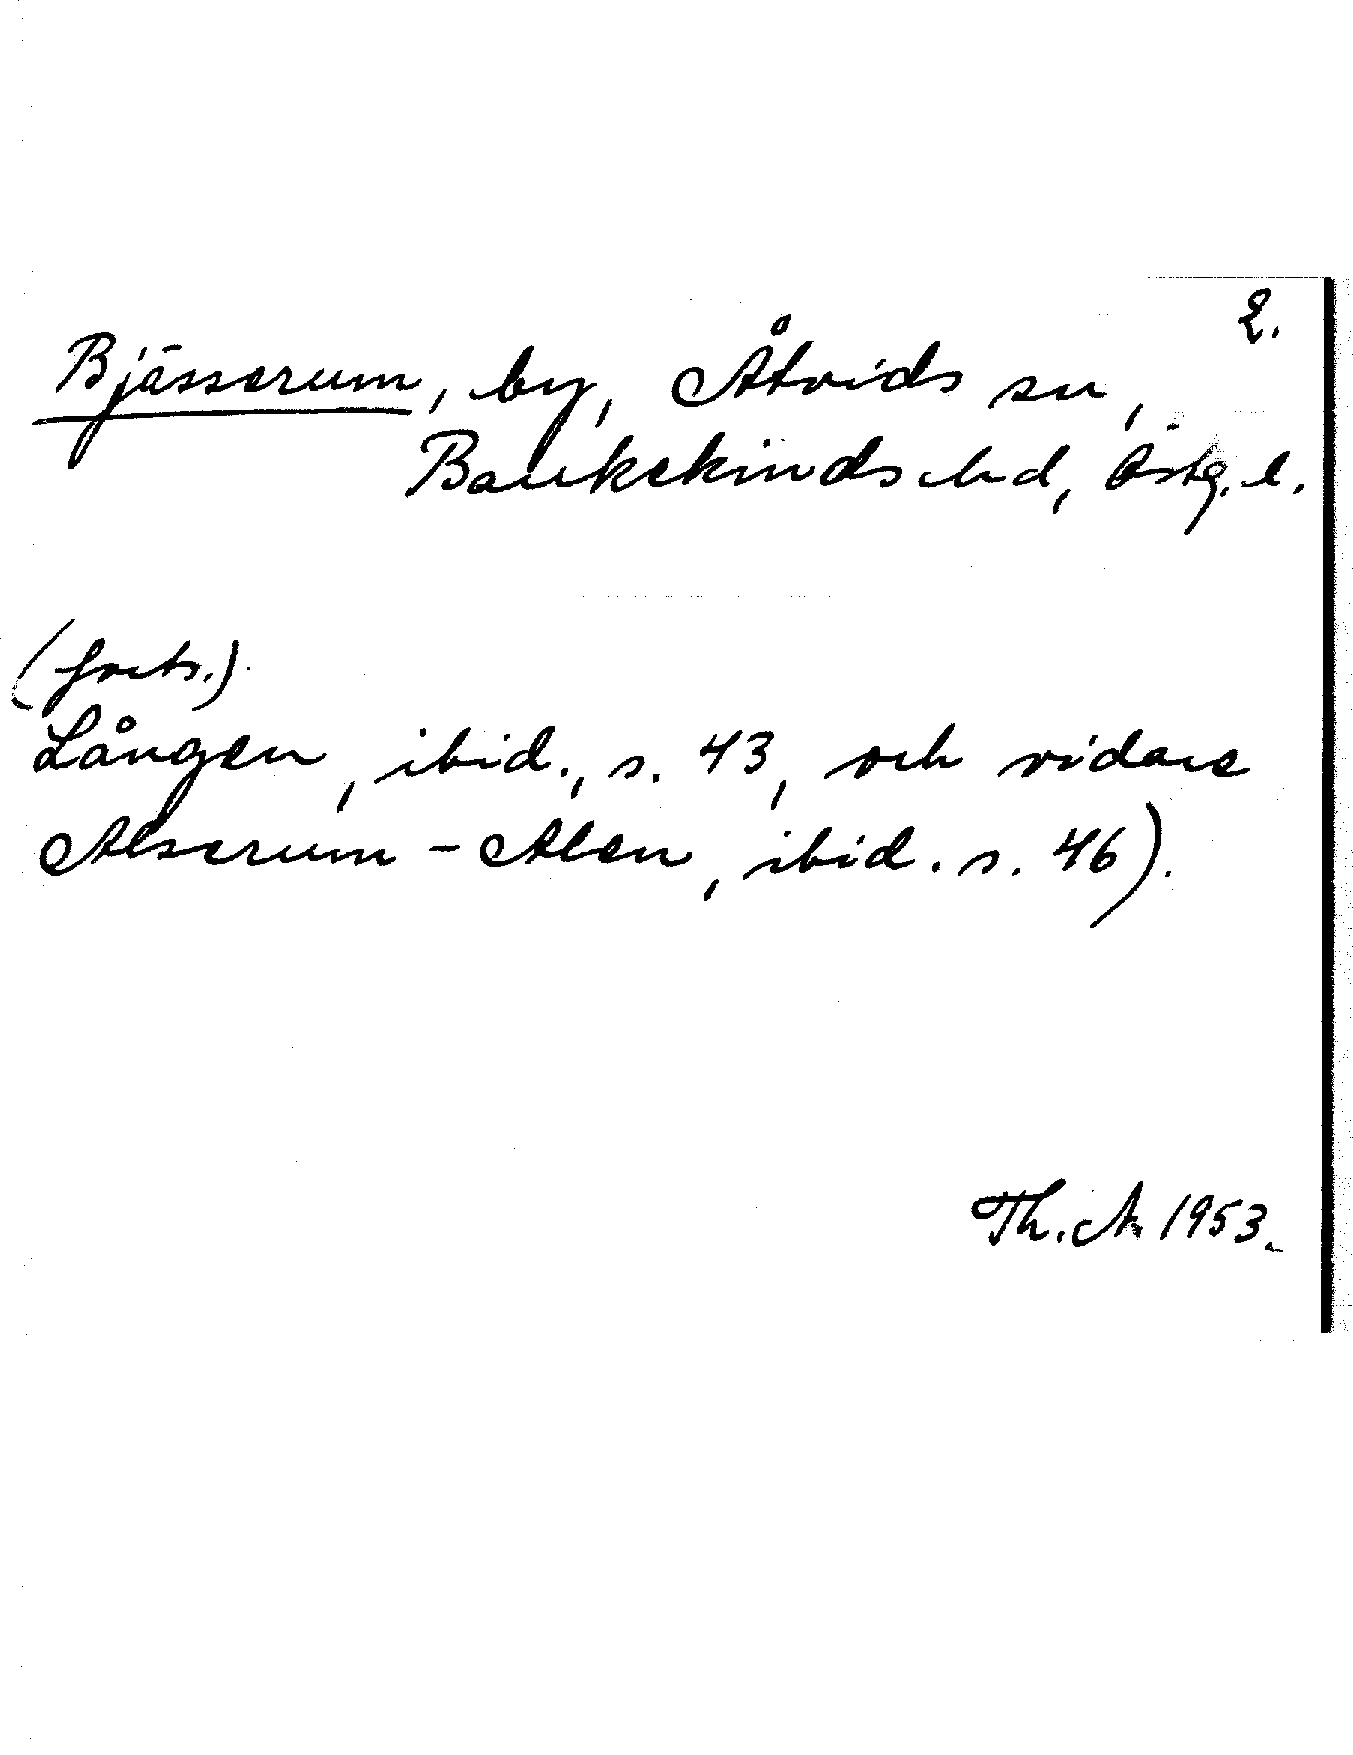 2.
Bjässerum, by, Åtvids sn,
Bankekinds hd, Östg. l.
(forts.)
Lången, ibid., s. 43, och vidare
Alserum - Alen, ibid. s. 46).
Th. A. 1953.